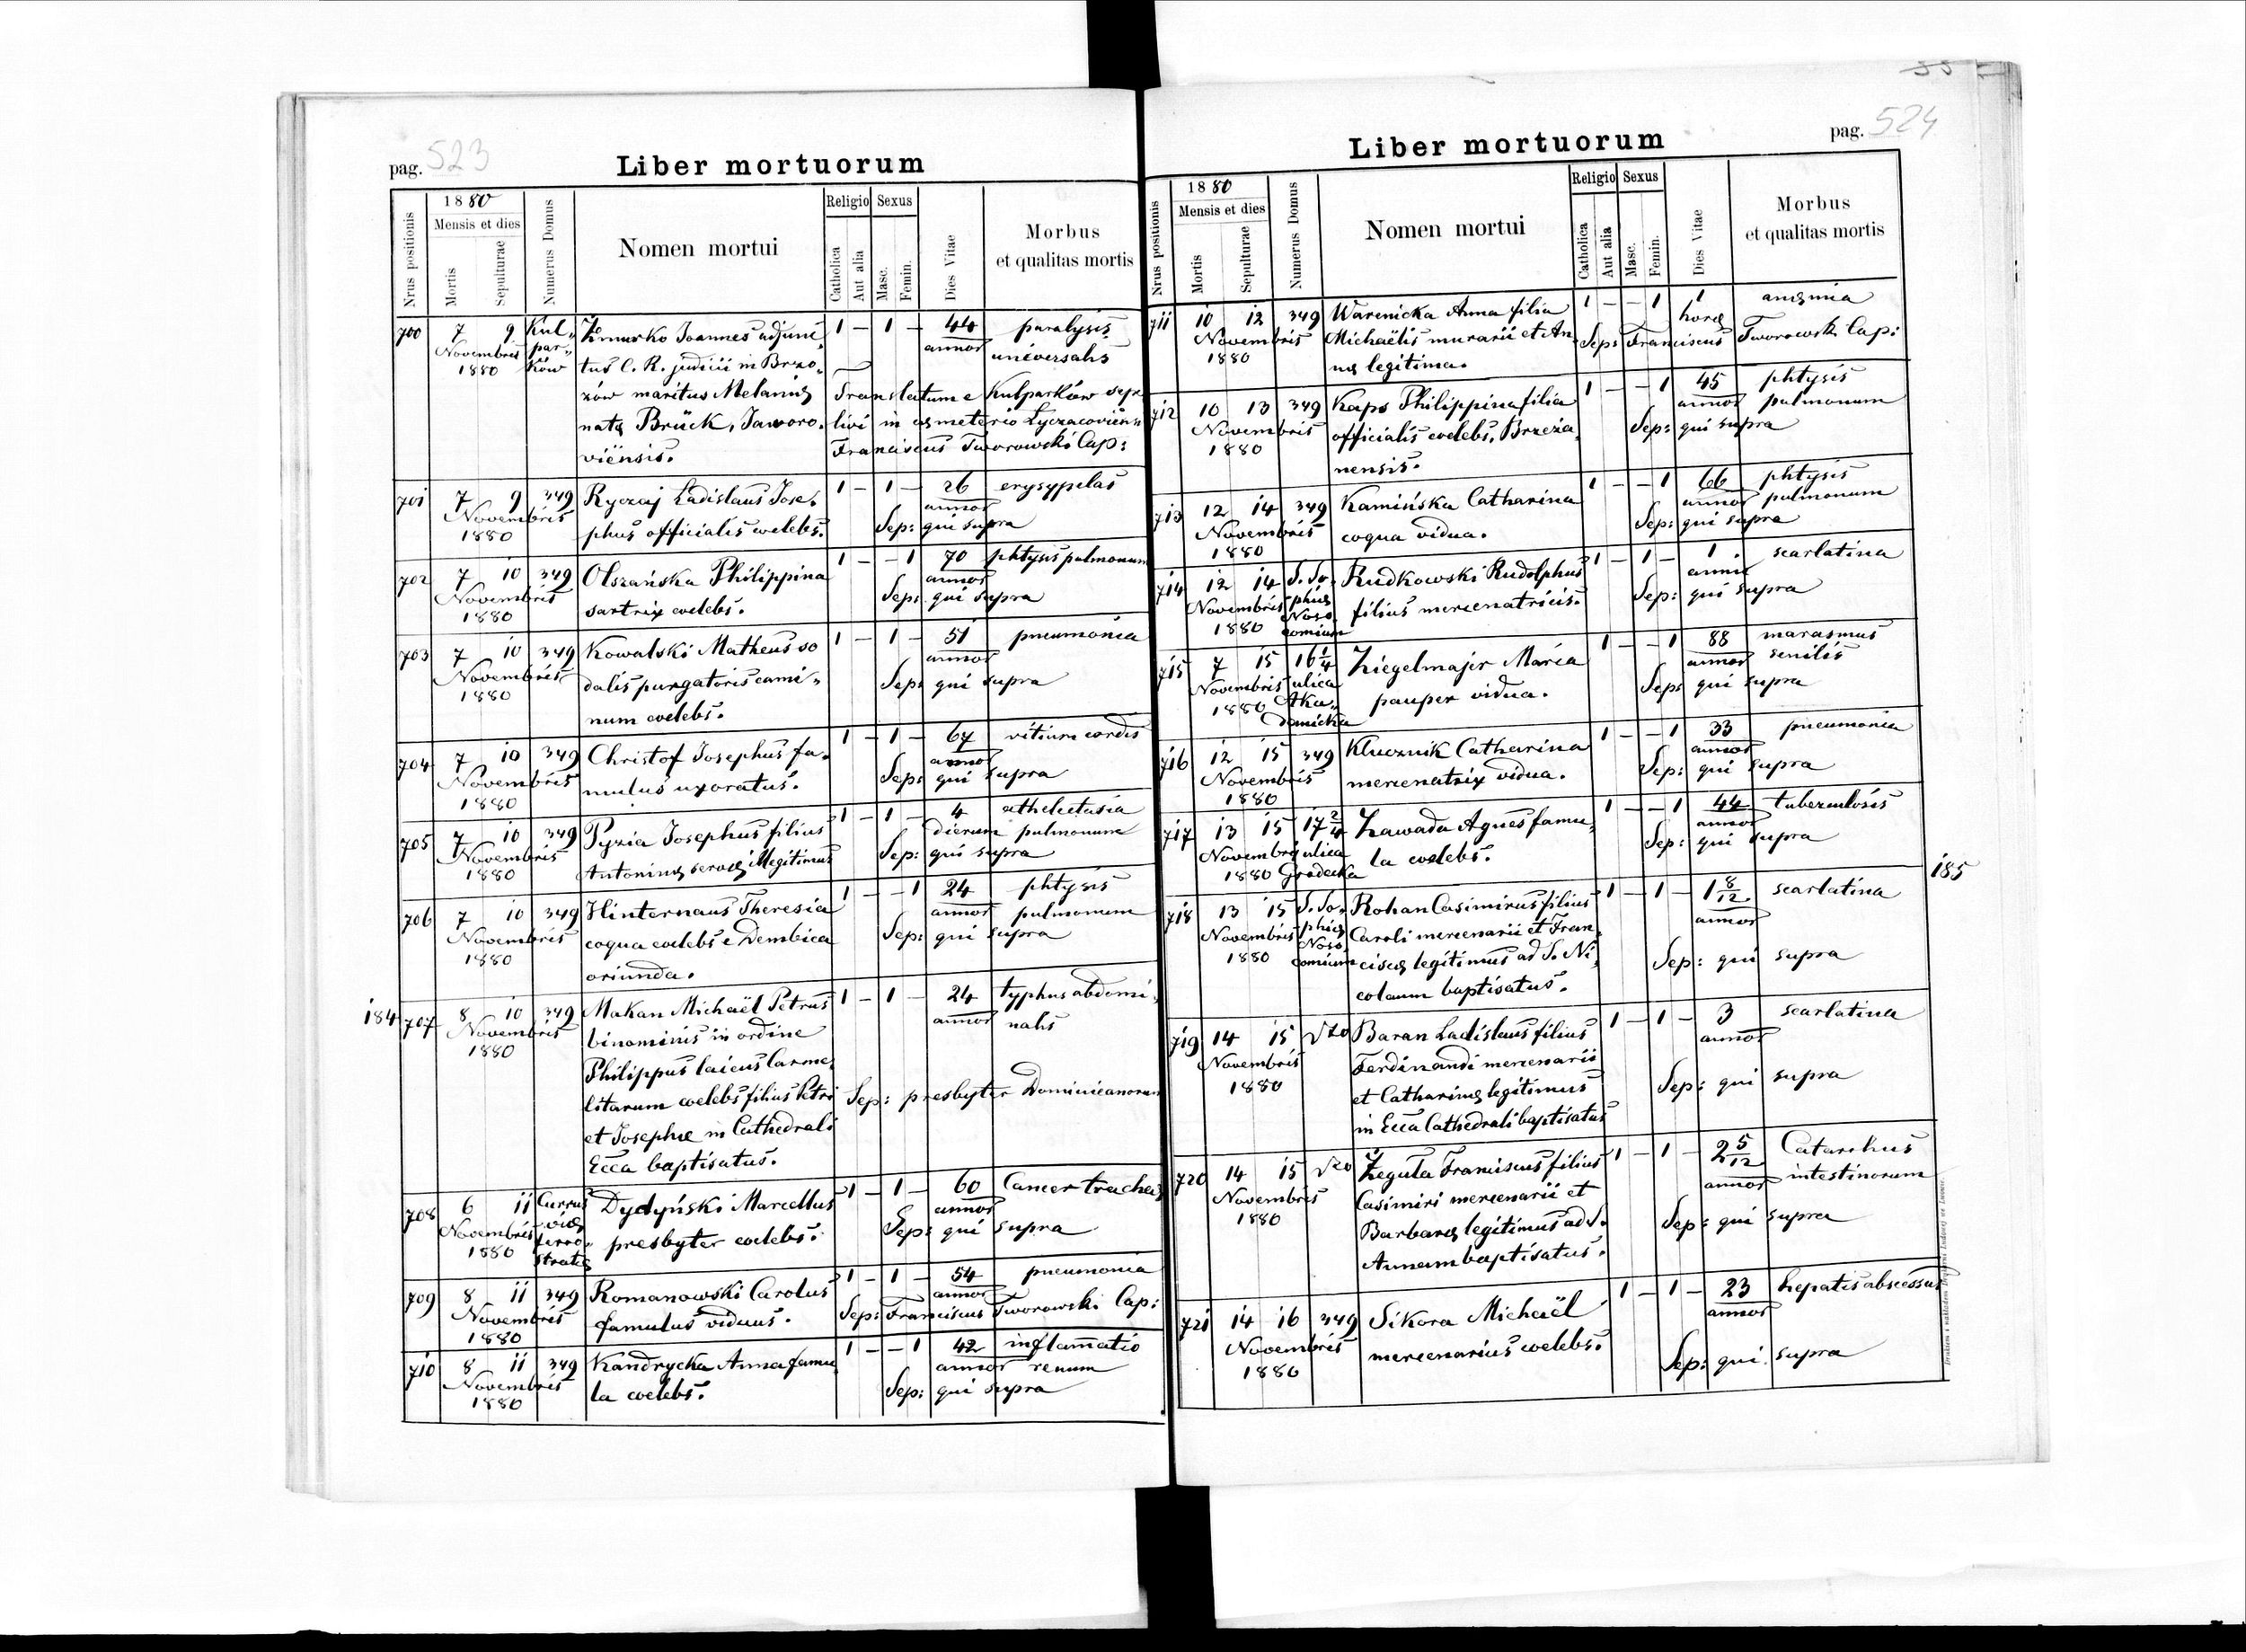 pag. 523
Liber mortuorum
Nrus positionis
1880
Mensis et dies
Mortis
Sepulturae
Numerus Domus
Nomen mortui
Religio
Catholica
Aut alia
Sexus
Masc.
Femin.
Dies Vitae
Morbus
et qualitas mortis
700 7 9 Kul„ Żmurko Joannes adjunc 1 — 1 — 44 paralysis
Novembris par„ tus C. R. judicii in Brzo„ annor universalis
1880 ków zów maritus Melaniæ Translatum e Kulparków sepe
natæ Brück, Jaworo. livi in cæmeterio Lyczacoviens
viensis. Franciscus Tworowski Cap:
701 7 9 349 Ryczaj Ladislaus Jose. 1 — 1 — 26 erysypelas
Novembris annor
1880 phus officialis coelebs. Sep: qui supra
702 7 10 349 Olszańska Philippina 1 — — 1 70 phtysis pulmonum
Novembris annor
1880 sartrix coelebs. Sep: qui supra
703 7 10 349 Kowalski Matheus so 1 — 1 — 51 pneumonia
Novembris dalis purgatoris cami„ annor
1880 num coelebs. Sep: qui supra
704 7 10 349 Christof Josephus fa„ 1 — 1 — 67 vitium cordis
Novembris annor
1880 mulus uxoratus. Sep: qui supra
705 7 10 349 Pyzia Josephus filius 1 — 1 — 4 athelectasia
Novembris dierum pulmonum
1880 Antoninæ servæ illegitimus Sep: qui supra
706 7 10 349 Hinternaus Theresia 1 — — 1 24 phtysis
Novembris coqua coelebs e Dembica annor pulmonum
1880 oriunda. Sep: qui supra
184 707 8 10 349 Makan Michaël Petrus 1 — 1 — 24 typhus abdomi„
Novembris binominis in ordine annor nalis
1880 Philippus laicus Carme„
litarum coelebs filius Petri Sep: presbyter Dominicanorum
et Josephæ in Cathedrali
Ecca baptisatus.
708 6 11 Currus Dydyński Marcellus 1 — 1 — 60 Cancer tracheæ
Novembris viæ annor
1880 ferro„ presbyter coelebs. Sep: qui supra
stratæ
709 8 11 349 Romanowski Carolus 1 — 1 — 54 pneumonia
Novembris annor
1880 famulus viduus. Sep: Franciscus Tworowski Cap:
710 8 11 349 Kandrycka Anna famu 1 — — 1 42 inflamatio
Novembris annor renum
1880 la coelebs. Sep: qui supra
pag. 524
Liber mortuorum
Nrus positionis
1880
Mensis et dies
Mortis
Sepulturae
Numerus Domus
Nomen mortui
Religio
Catholica
Aut alia
Sexus
Masc.
Femin.
Dies Vitae
Morbus
et qualitas mortis
711 10 12 349 Warenicka Anna filia 1 — — 1 1 anæmia
Novembris Michaëlis murarii et An„ horæ
1880 næ legitima. Sep: Franciscus Tworowsk Cap:
712 10 13 349 Kaps Philippina filia 1 — — 1 45 phtysis
Novembris officialis coelebs, Brzeża„ annor pulmonum
1880 nensis. Sep: qui supra
713 12 14 349 Kamińska Catharina 1 — — 1 66 phtysis
Novembris annor pulmonum
1880 coqua vidua. Sep: qui supra
714 12 14 S. So„ Rudkowski Rudolphus 1 — 1 — 1 scarlatina
Novembris phiæ anni
1880 Noso filius mercenatricis. Sep: qui supra
comium
715 7 15 16 1/4 Ziegelmajer Maria 1 — — 1 88 marasmus
Novembris ulica annor senilis
1880 Aka„ pauper vidua. Sep: qui supra
demicka
716 12 15 349 Klucznik Catharina 1 — — 1 33 pneumonia
Novembris annor
1880 mercenatrix vidua. Sep: qui supra
717 13 15 17 2/4 Zawada Agnes famu„ 1 — — 1 44 tuberculosis
Novembris ulica annor
1880 Grodecka la coelebs. Sep: qui supra
185
718 13 15 S. So„ Rohan Casimirus filius 1 — 1 — 1 8/12 scarlatina
Novembris phiæ Caroli mercenarii et Fran„ annor
1880 Noso ciscæ legitimus ad S. Ni„ Sep: qui supra
comium colaum baptisatus.
719 14 15 dto Baran Ladislaus filius 1 — 1 — 3 scarlatina
Novembris Ferdinandi mercenarii annor
1880 et Catharinæ legitimus Sep: qui supra
in Ecca Cathedrali baptisatus
720 14 15 dto Żeguła Franciscus filius 1 — 1 — 2 5/12 Catarrhus
Novembris Casimiri mercenarii et annor intestinorum
1880 Barbaræ legitimus ad S. Sep: qui supra
Annam baptisatus.
721 14 16 349 Sikora Michaël 1 — 1 — 23 hepatis abscessus
Novembris annor
1880 mercenarius coelebs. Sep: qui supra